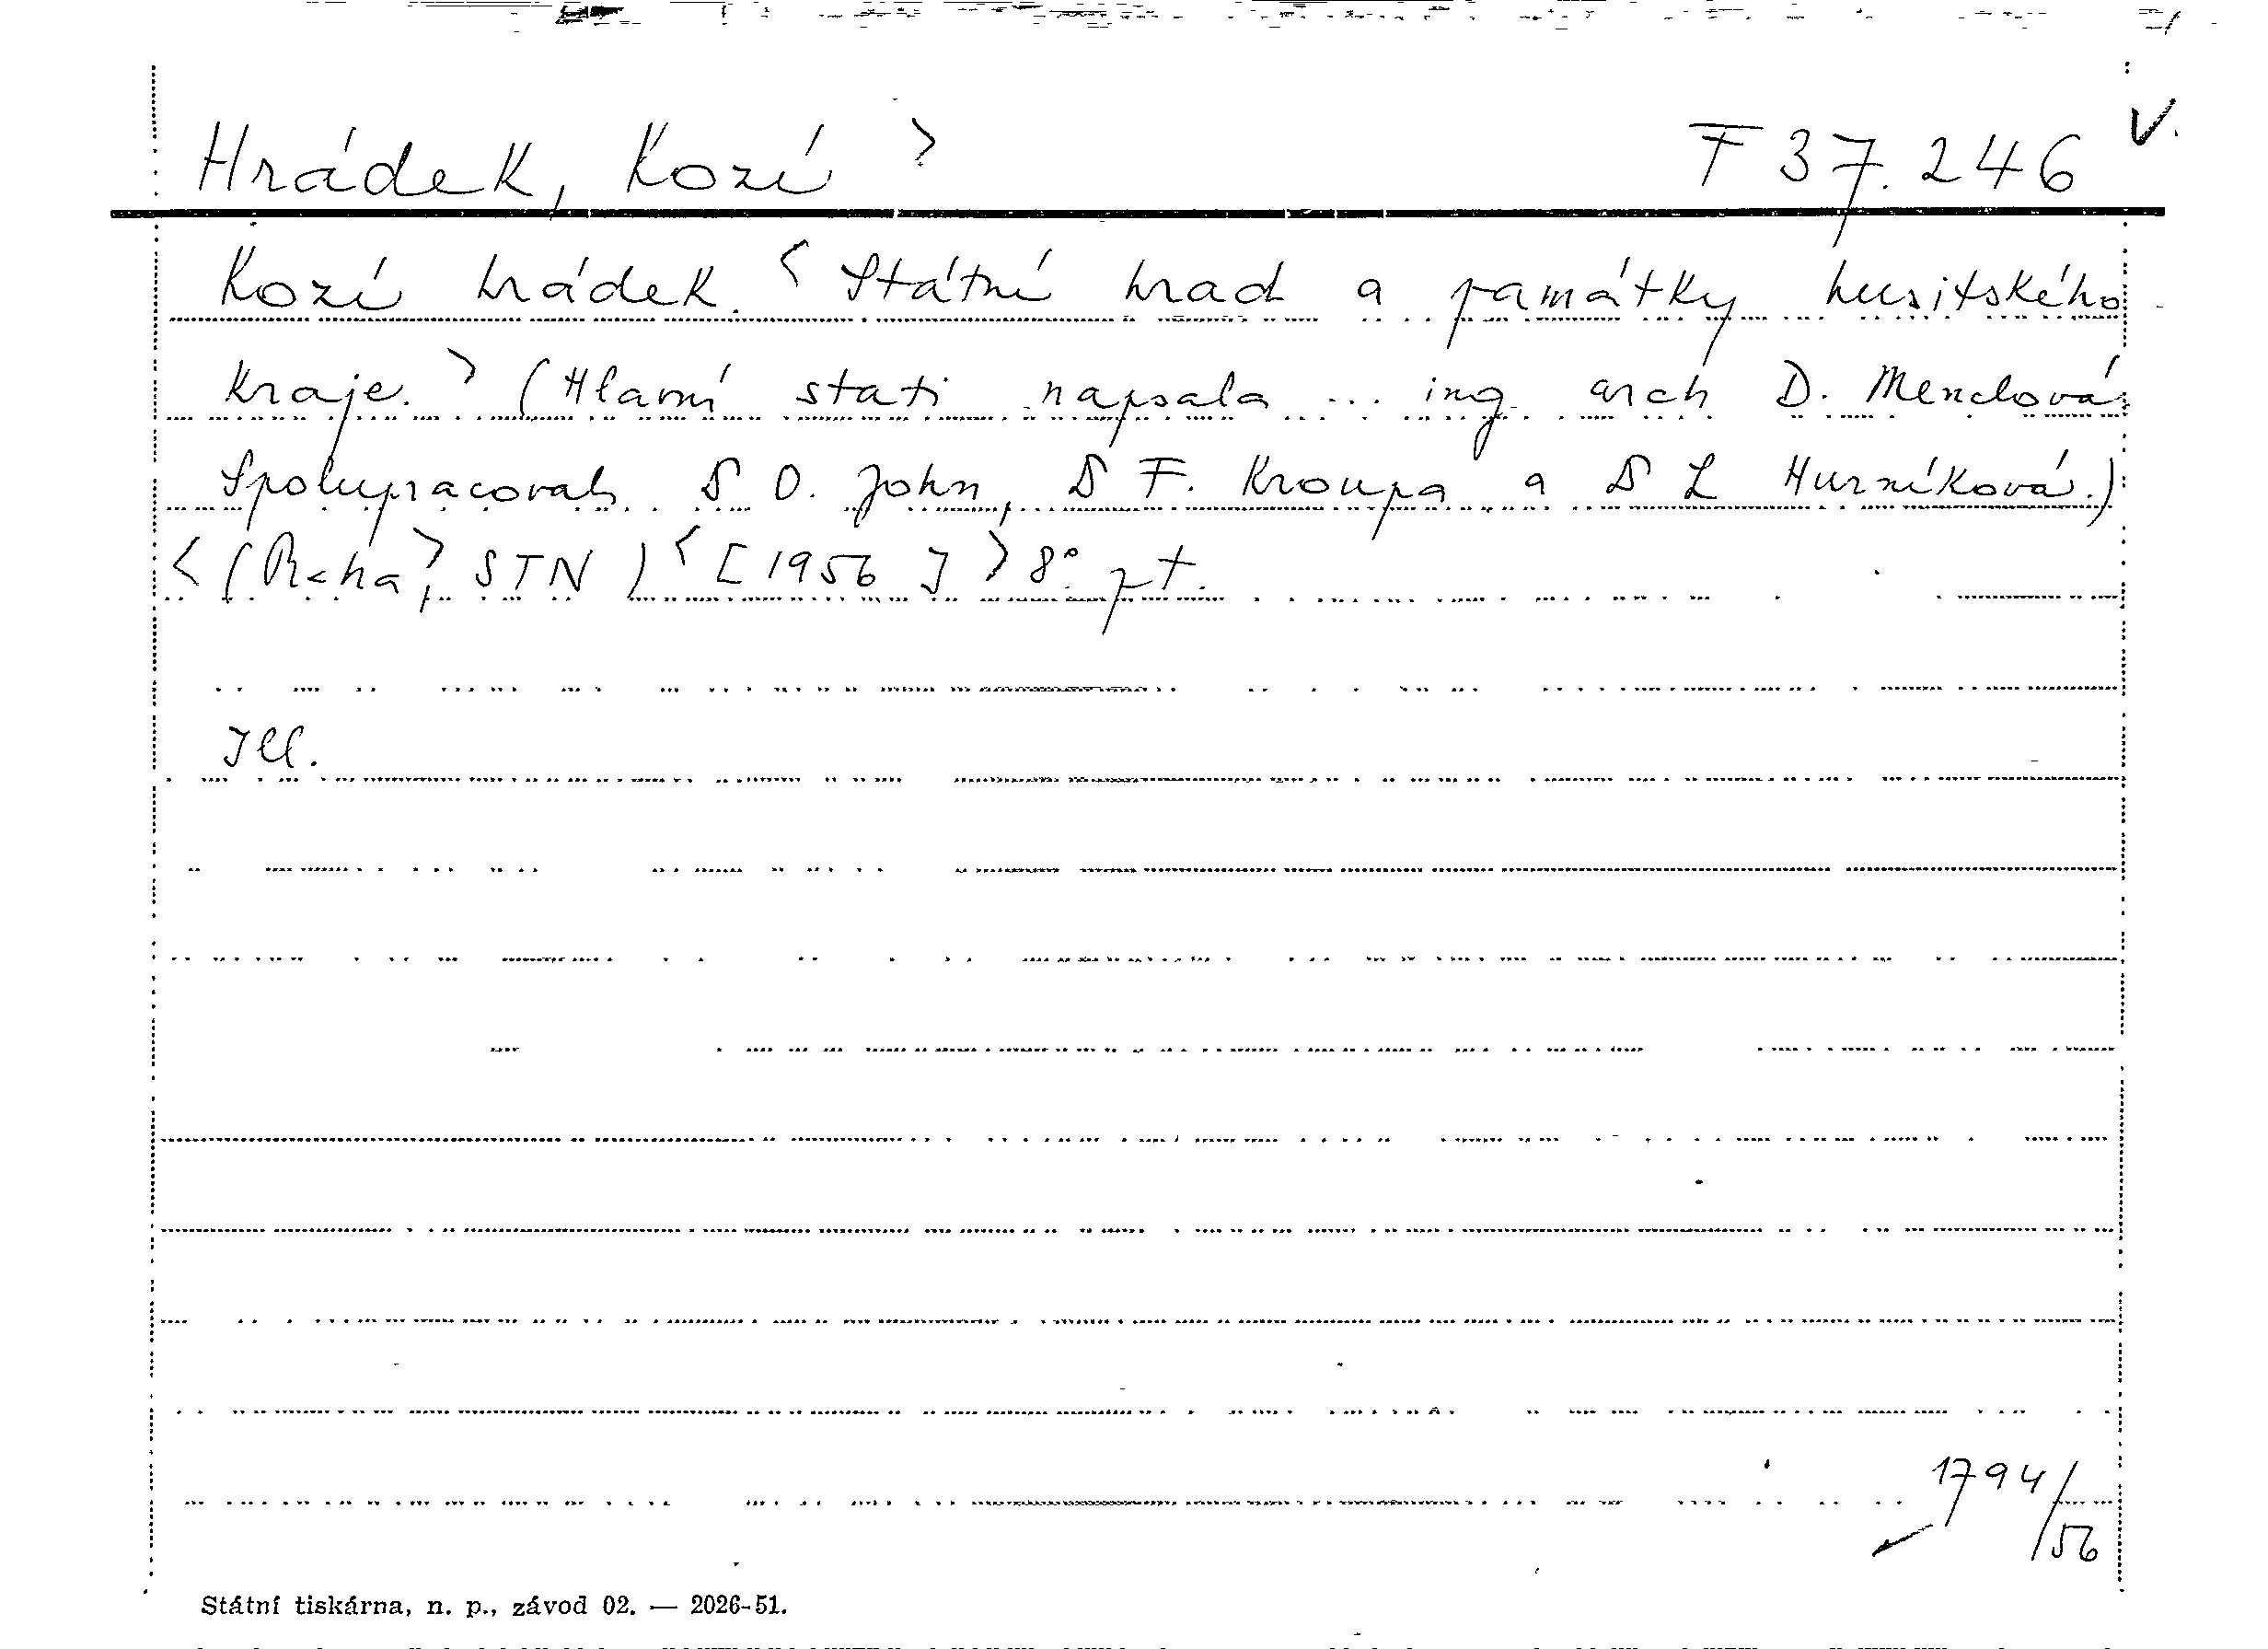 Hrádek, Kozí > F 37.246 V.
Kozí hrádek. < Státní hrad a památky husitského
kraje. > (Hlavní stati napsala ... ing. arch D. Menclová
Spolupracovali D O. John, D F. Kroupa a D L Hurníková.)
< (Praha >, STN ) < [1956] > 8°. pt.
Ill.
1794/
56
Státní tiskárna, n. p., závod 02. — 2026-51.